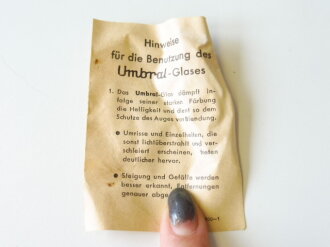 Hinweise
für die Benutzung des
Umbral-Glases
1. Das Umbral-Glas dämpft in-
folge seiner starken Färbung
die Helligkeit und dient so dem
Schutze des Auges vor Blendung.
● Umrisse und Einzelheiten, die
sonst lichtüberstrahlt und ver-
schleiert erscheinen, treten
deutlicher hervor.
● Steigung und Gefälle werden
besser erkannt, Entfernungen
genauer abge